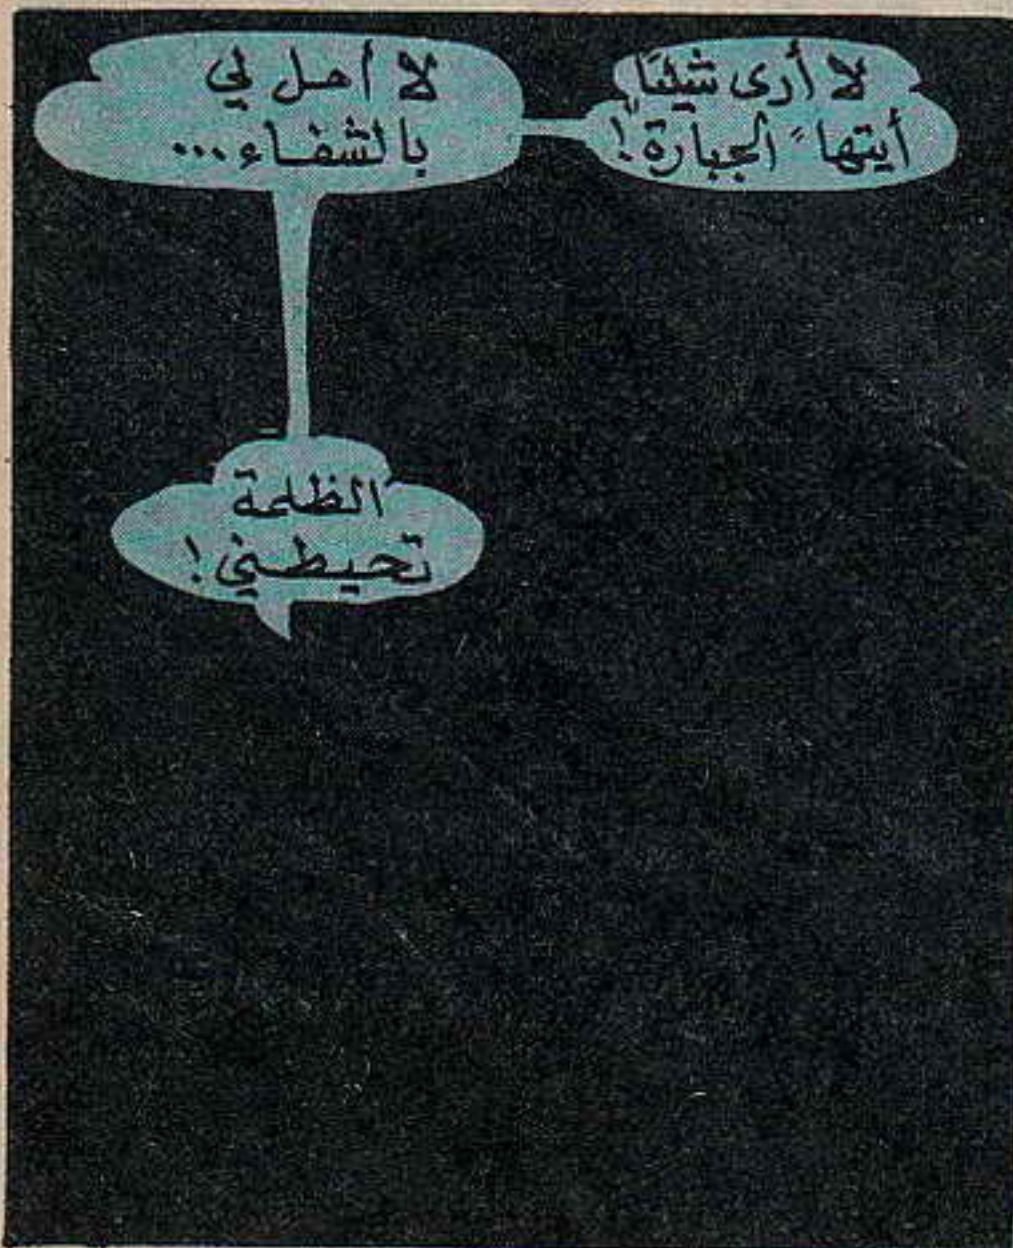 لا أرى شيئاً
أيتها "الجبارة"!
لا أمل لي
بالشفاء...
الظلمة
تحيطني!